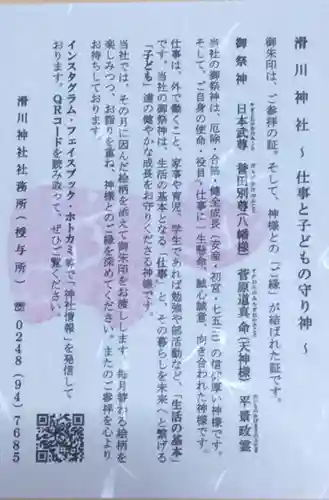 滑川神社 ～ 仕事と子どもの守り神 ～
御朱印は、ご参拝の証。そして、神様との「ご縁」が結ばれた証です。
御祭神 日本武尊 誉田別尊(八幡様) 菅原道真命(天神様) 平景政霊
当社の御祭神は、厄除・合格・健全成長(安産・初宮・七五三)の信仰厚い神様です。
そして、ご自身の使命・役目・仕事に一生懸命、誠心誠意、向き合われた神様です。
仕事は、外で働くこと、家事や育児、学生であれば勉強や部活動など、「生活の基本」
です。当社の御祭神は、生活の基本となる「仕事」と、その暮らしを未来へと繋げる
「子ども」達の健やかな成長をお守りくださる神様です。
当社では、その月に因んだ絵柄を添えて御朱印をお渡しします。毎月替わる絵柄を
楽しみつつ、お詣りを重ね、神様とのご縁を深めてください。またのご参拝を心より
お待ちしております。
インスタグラム・フェイスブック・ホトカミ等で「神社情報」を発信して
おります。QRコードを読み取って、ぜひご覧ください。
滑川神社社務所(授与所) ☎0248(94)7685